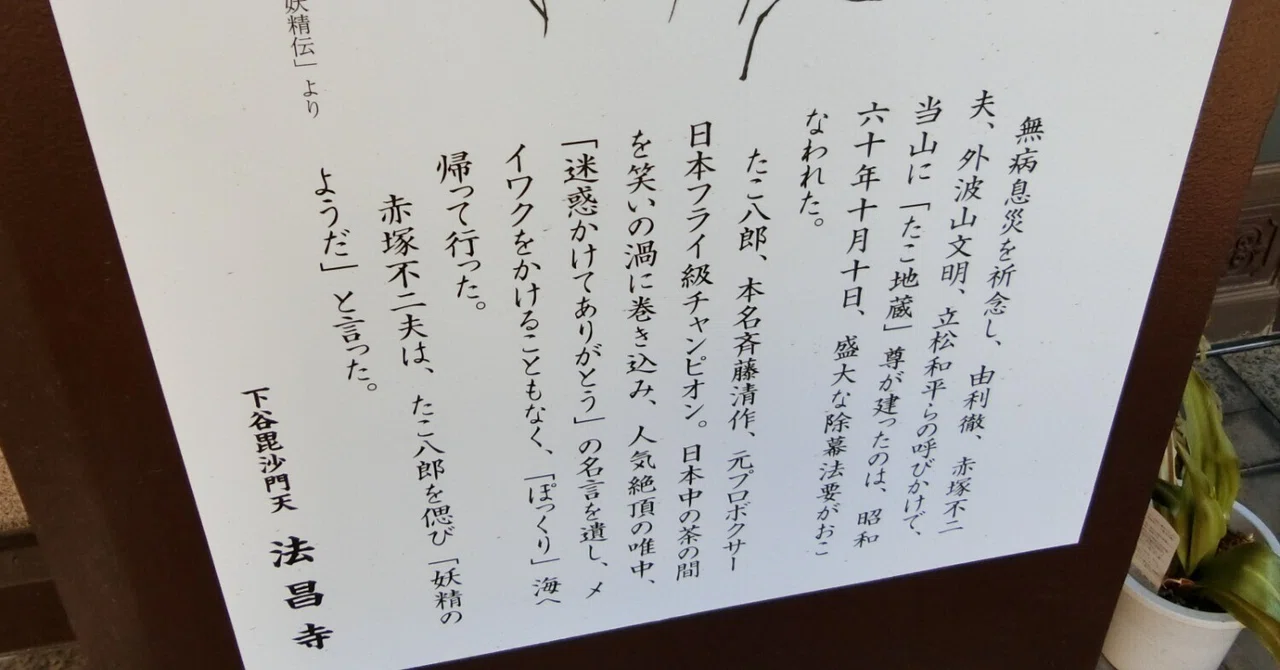 無病息災を祈念し、由利徹、赤塚不二
夫、外波山文明、立松和平らの呼びかけで、
当山に「たこ地蔵」尊が建ったのは、昭和
六十年十月十日、盛大な除幕法要がおこ
なわれた。
たこ八郎、本名斉藤清作、元プロボクサー
日本フライ級チャンピオン。日本中の茶の間
を笑いの渦に巻き込み、人気絶頂の唯中、
「迷惑かけてありがとう」の名言を遺し、メ
イワクをかけることもなく、「ぽっくり」海へ
帰って行った。
赤塚不二夫は、たこ八郎を偲び「妖精の
ようだ」と言った。
妖精伝」より
下谷毘沙門天 法昌寺